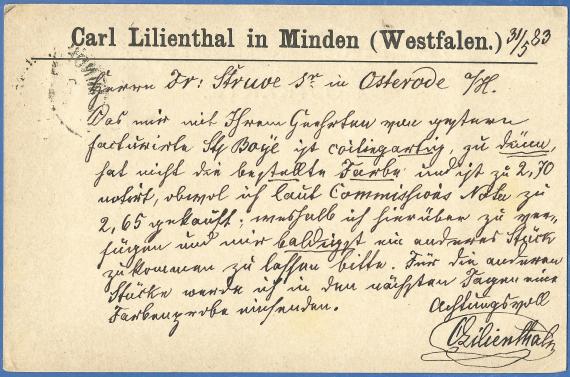 Carl Lilienthal in Minden (Westfalen.) 31/5 83
Herrn Fr: Struve Sr in Osterode a/H.
Das mir mit Ihrem Geehrten von gestern
facturirte Stk Boÿe ist coiliegartig, zu dünn,
hat nicht die bestellte Farbe und ist zu 2,70
notirt, obwol ich laut Commissions Nota zu
2,65 gekauft; weshalb ich hierüber zu ver-
fügen und mir baldigst ein anderes Stück
zukommen zu lassen bitte. Für die anderen
Stücke werde ich in den nächsten Tagen eine
Farbenprobe einsenden.
Achtungsvoll
CLilienthal